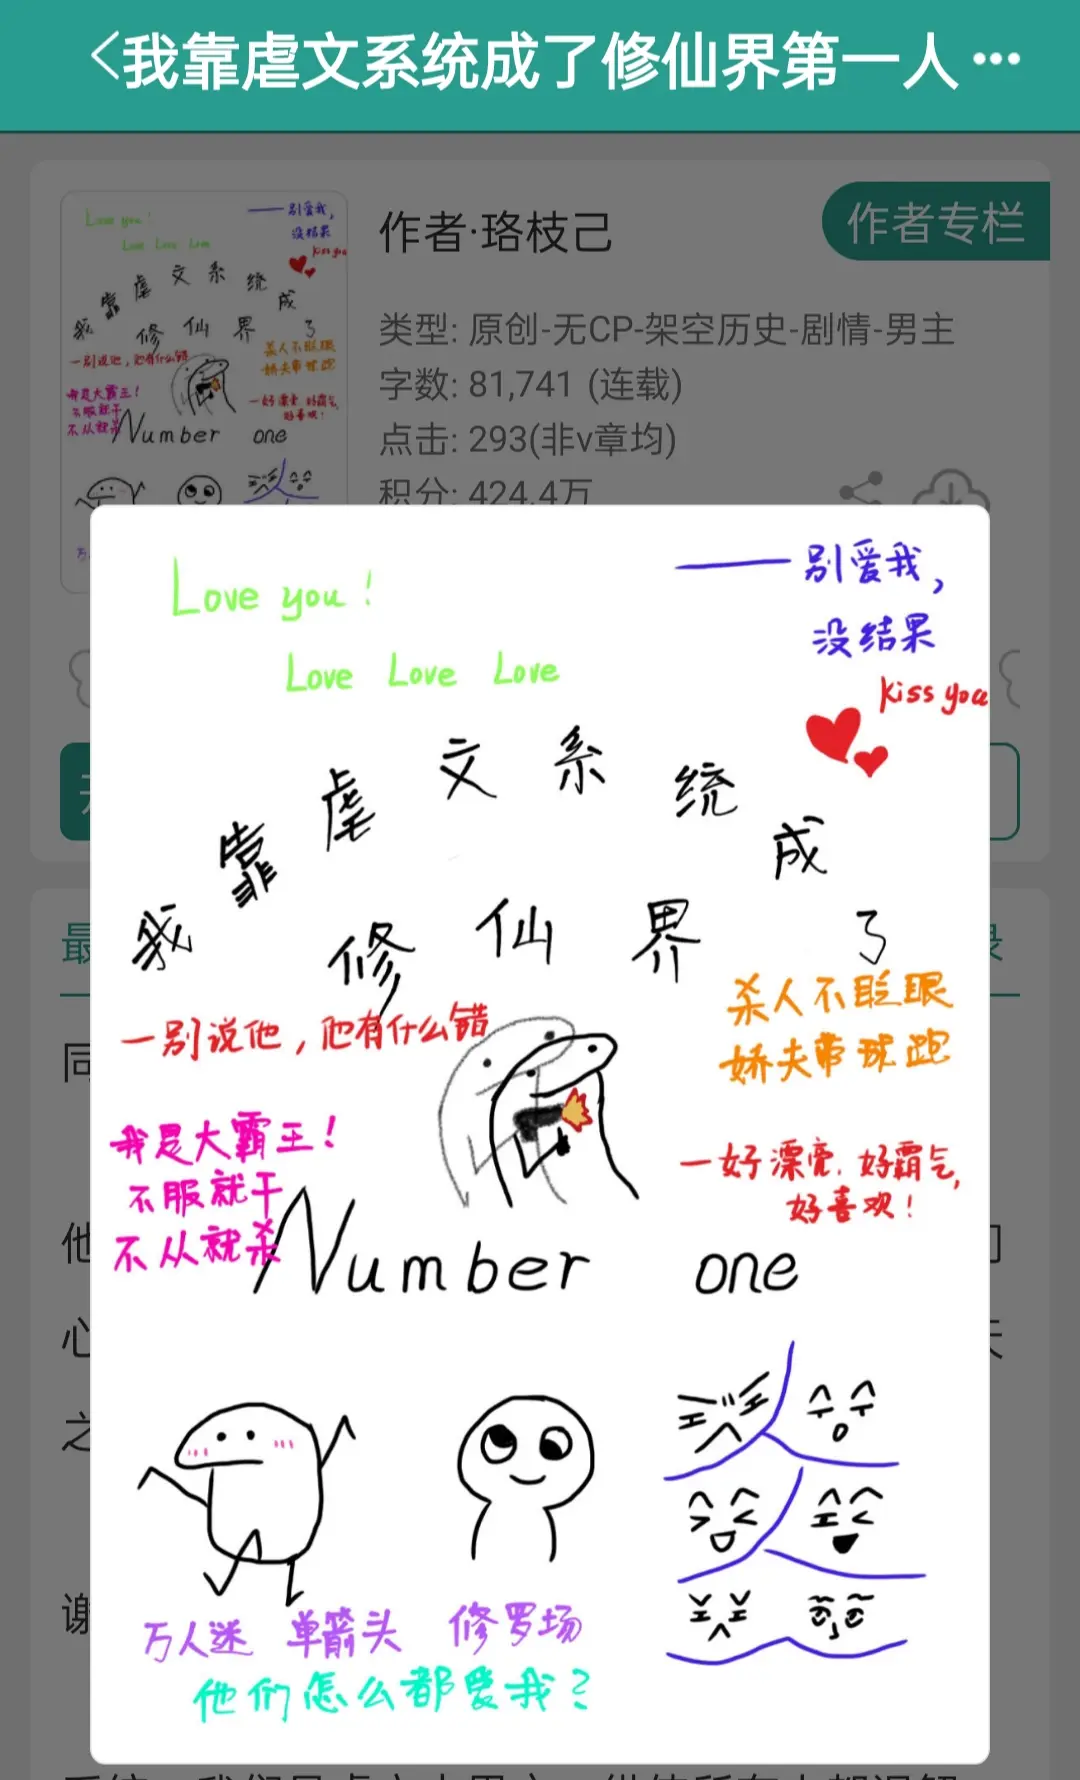 我靠虐文系统成了修仙界第一人
作者·珞枝己
作者专栏
类型: 原创-无CP-架空历史-剧情-男主
字数: 81,741 (连载)
点击: 293(非v章均)
积分: 424.4万
Love you!
Love Love Love
——别爱我,
没结果
kiss you
我靠虐文系统成了
修仙界
一别说他,他有什么错
杀人不眨眼
娇夫带球跑
我是大霸王!
不服就干
不从就杀
一好漂亮.好霸气,
好喜欢!
Number one
万人迷 单箭头 修罗场
他们怎么都爱我?